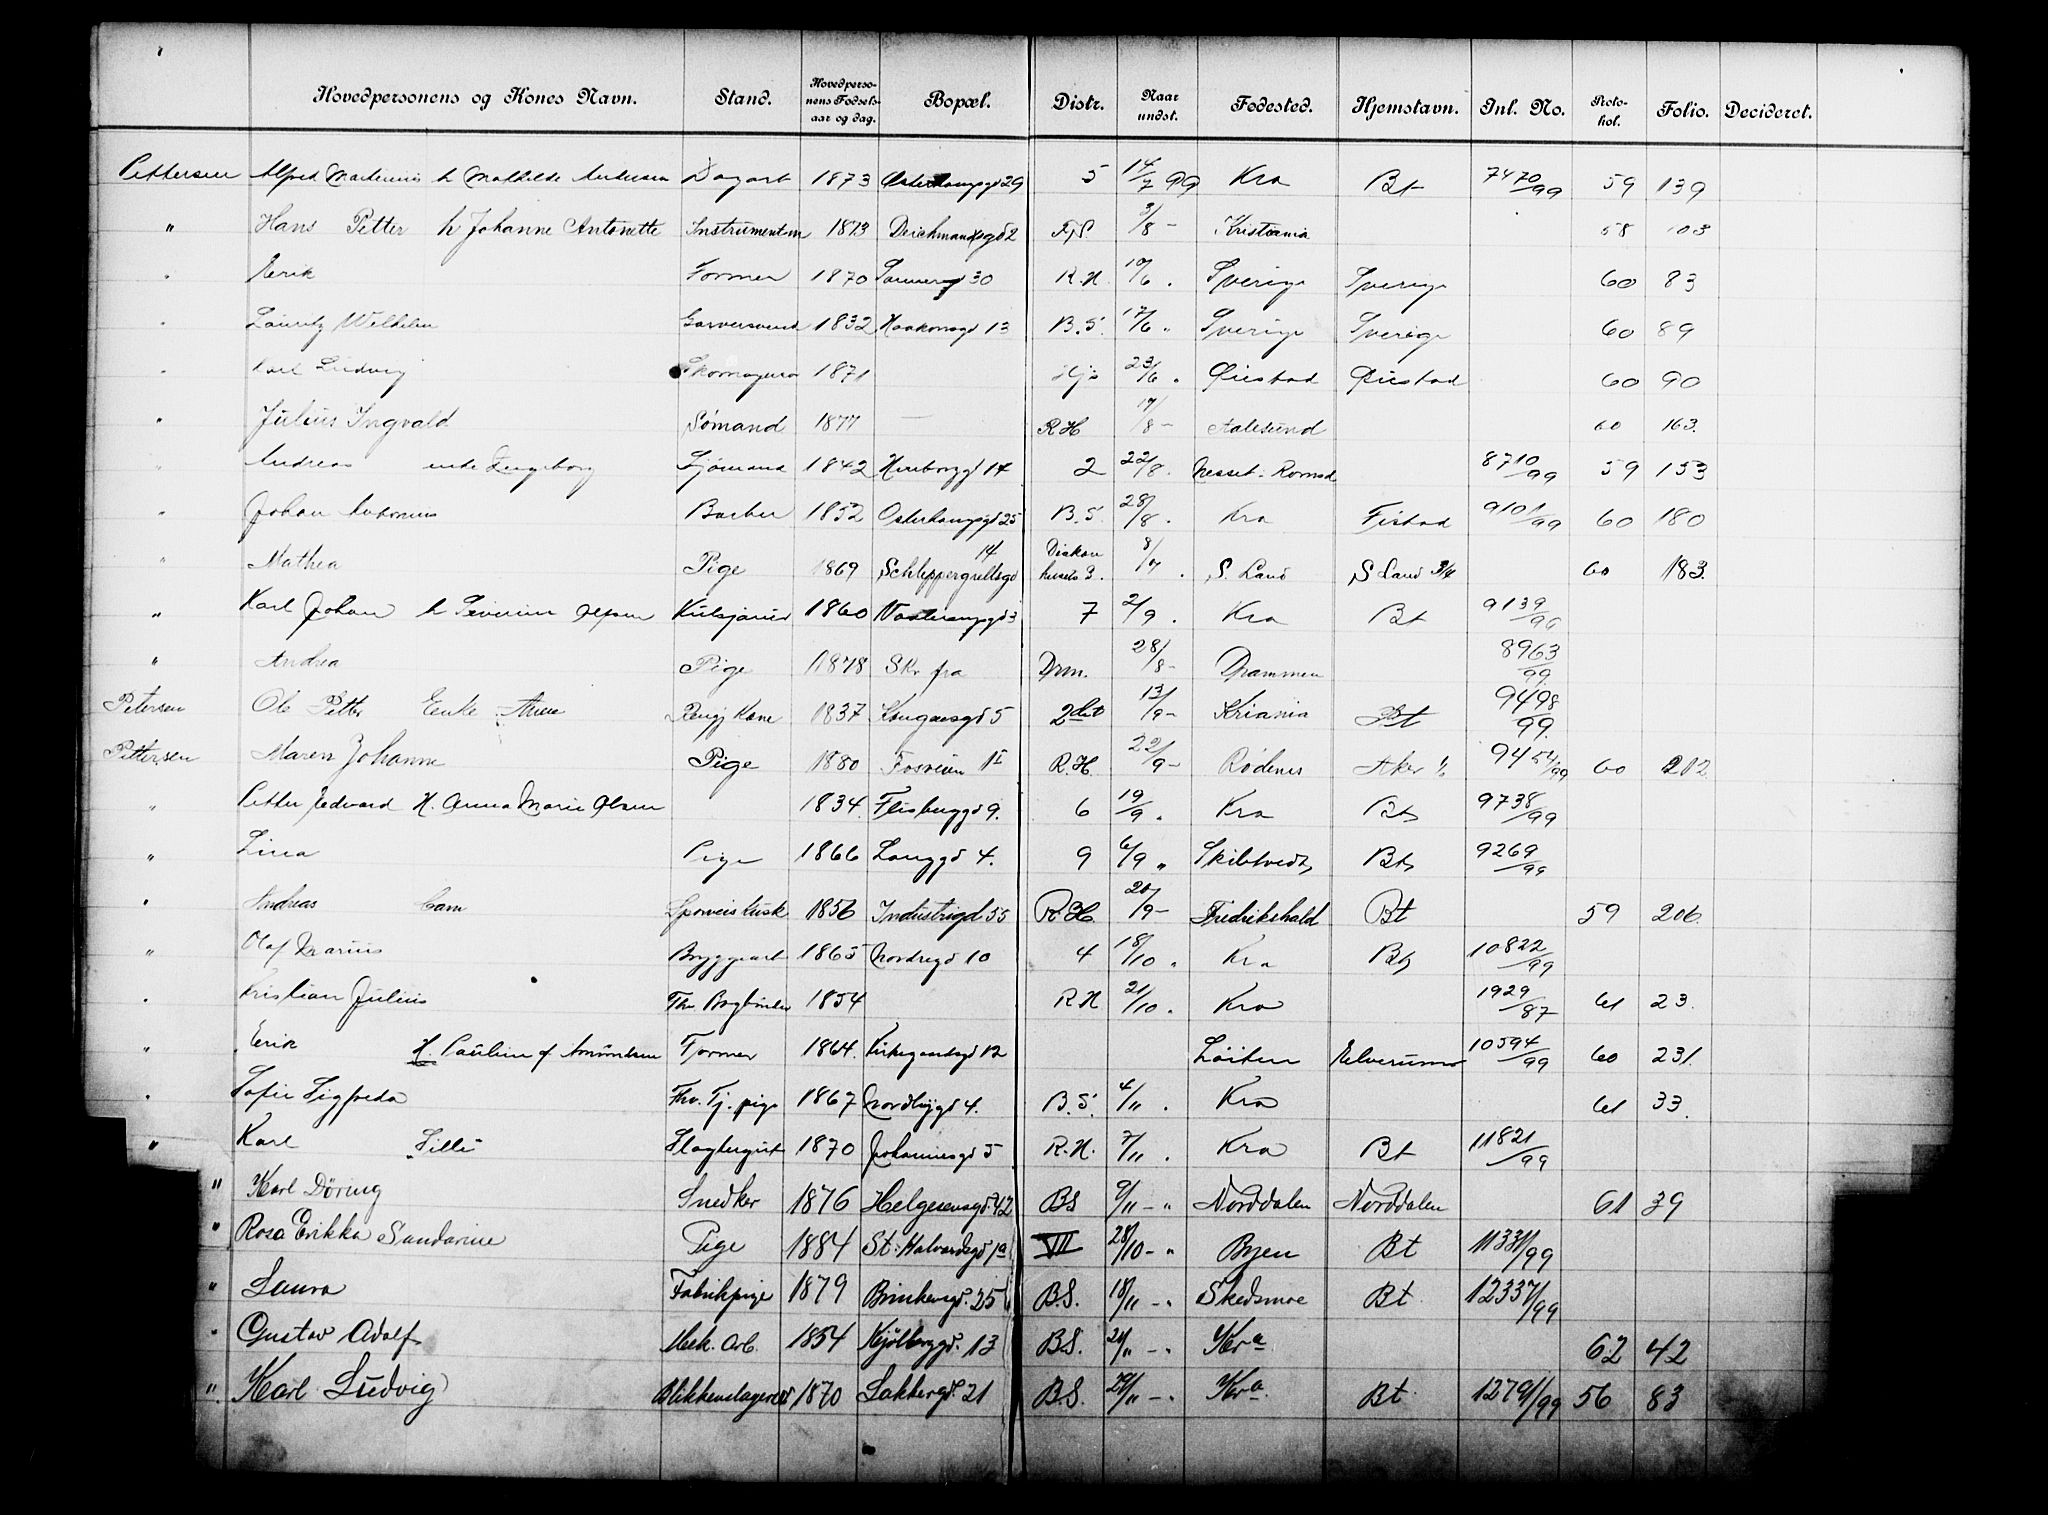 Hovedpersonens og Kones Navn. Stand. Hovedpersonens Fødselsaar og dag. Bopæl. Distr. Naar undst. Fødested. Hjemstavn. Inl. No. Protokol. Folio. Decideret.
Pettersen Alfred Martinius h Mathilde Andersen Dagarb 1873 Østerhausgd 29 5 14/7 99 Kra Bt 7470/99 59 139
" Hans Petter h Johanne Antonette Instrumentm 1873 Deichmandsgd 2 3/8 - Kristiania 58 103
" Erik Former 1870 Sannergd 30 R.H. 10/6 . Sverige Sverige 60 83
" Lauritz Wilhelm Garversvend 1832 Haakonsgd 13 B.S. 17/6 " Sverige Sverige 60 89
" Karl Ludvig Skomagersv 1871 Hjs 23/6 " Øiestad Øiestad 60 90
" Julius Ingvald Sømand 1877 — R H 17/8 - Aalesund 60 163.
" Andreas enke Ingeborg Sjømand 1842 14 2 22/8 . Nesset - Romsd 8710/99 59 153
" Johan Antonius Barber 1852 Osterhausgd 25 B.S. 28/8 . Kra Fistad 9101/99 60 180
" Mathea Pige 1869 Schleppergrellsgd 14 Diakon huset 8/7 . S. Land S Land 3/4 60 183.
" Karl Johan h Severine Olsen Kulsjauer 1860 3 7 2/9 . Kra Bt 9139/99
" Andrea Pige 1878 Skr fra Drm. 28/8 - Drammen 8963/99
Petersen Ole Petter Enke Anne Rengj Kone 1837 Kongensgd 5 2det 13/9 - Kriania Bt 9498/99.
Pettersen Maren Johanne Pige 1880 Fosveien R.H. 22/9 - Rødenes Aker 9454/99 60 212
" Petter Edvard H. Anna Marie Olsen 1834. Flisberggd 9. 6 19/9 . Kra Bt 9738/99
" Lina Pige 1866 Langgd 4. 9 6/9 " Skibtvedt Bt 9269/99
" Andreas Sporveiskusk 1856 Industrigd 55 R.H. 20/9 - Fredrikshald Bt 59 206.
" Olaf Marius Bryggearb 1865 Nordregd 10 4 18/10 " Kra Bt 10822/99
" Kristian Julius Fhv. Bogbinder 1854 R H 21/10 . Kra 1929/87 61 23.
" Erik H. Pauline f Amundsen Former 1864. Kirkegaardsgd 12 Løiten Elverum 10594/99 60 231.
" Sofie Sigfreda Fhv. Tj. pige 1867 Nordbygd 4. B.S. 4/11 . Kra 61 33.
" Karl Lilli Slagtergut 1870 Johannesgd 5 R.H. 7/11 . Kra Bt 11821/99
" Karl Döring Snedker 1876 Helgesensgd. 42 BS 9/11 - " Norddalen Norddalen 61 39
" Rosa Erikka Sandarine Pige 1884 St. Halvardsgd 1a VII 28/10 - " Byen Bt 11331/99
" Laura Fabrikpige 1879 Brinkensgd. 25 B.S. 18/11 - " Skedsmoe Bt 12337/99
" Gustav Adolf Mek. Arb. 1854 Kjølberggd. 13 B.S. 21/11 - " Kra 62 42
" Karl Ludvig Blikkenslagersv 1870 Lakkergd. 21 B.S. 29/11 - " Kra Bt 12791/99 56 83